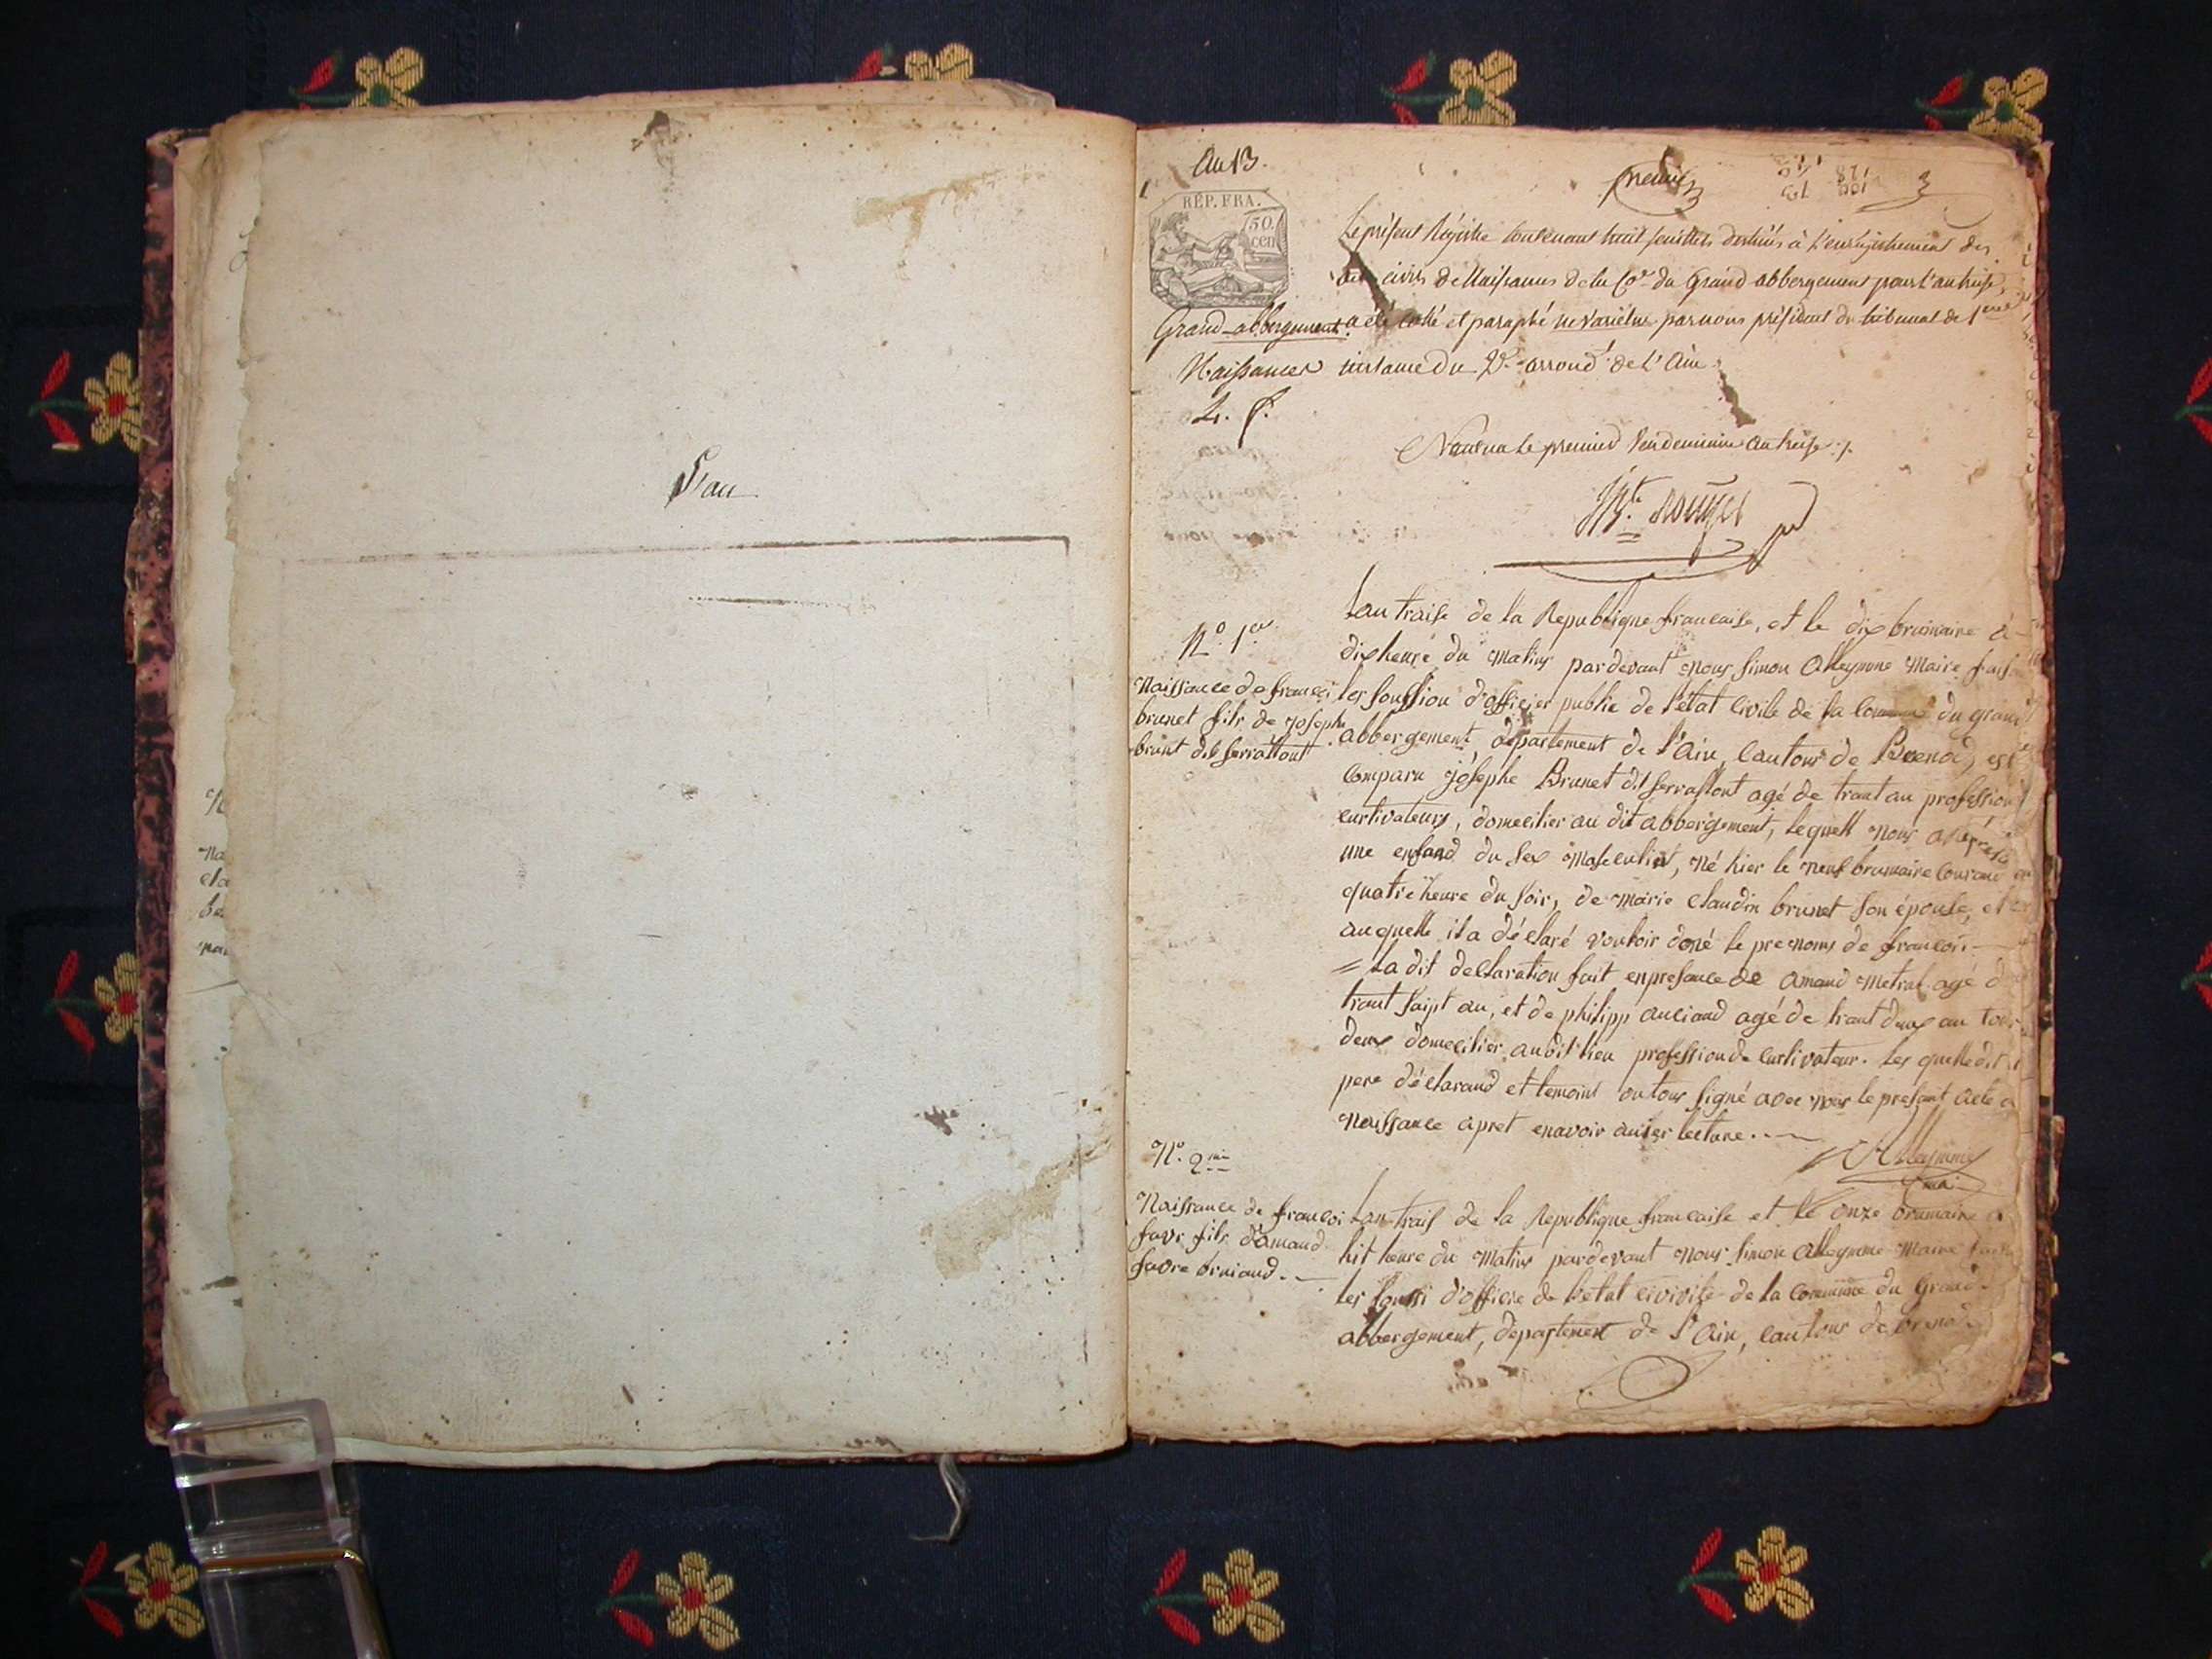 L'au
An 13.
premier
RÉP. FRA.
50.
cen
Le présent Régistre contenant huit feuillets destinés à l'enregistrement des
actes civils de Naissances de la Cne du Grand abbergement pour l'an treise,
Grand-abbergement. a été cotté et paraphé ne varietur par nous président du tribunal de 1ere
Naissances instance du 2e arrond.t de l'Ain.
Nantua le premier Vendemiaire an treise ./.
N.o 1.er
Naissance de francoi
brunet fils de Josephe
brunt dit serrattont
Lan traise de la Republique francaise, et le dix brumaire à
dix heure du matins pardevant nous Simon Alleymne Maire fais
les fonssion d'officier public de l'état civile de la Comune du grand
abbergement, département de l'Ain, Cantons de Brenod, est
Comparu josephe Brunet dit serrattont agé de trant an profession
curtivateurs, domecilier au dit abbergement, lequell nous a
une enfand du sex masculint, né hier le neuf brumaire Courand
quatre heure du soir, de marie Claudin brunet son épouse, et
auquelle il a déclaré vouloir doné le prenoms de francois
= La dit declaration fait en presance de Amand Metral agé d
trant saipt an, et de philipp anciand agé de trant deux an tous
deux domecilier au dit lieu profession de Curtivateur. Les quelle dit
pere déclarand et temoint on tous signé avec nous le presant acte
Naissance apret en avoir
lecture.
Alleymne
N.o 2me
Naissance de francoi
favr fils d'amand
favre bruiand.
Lan trais de la Republique francaise et le onze brumaire
hit heure du matins pardevant nous Simon Alleymne Maire
les
d'officie de l'etat civivile de la Commune du Grand
abbergement, departement de l'Ain, Cantons de brenod